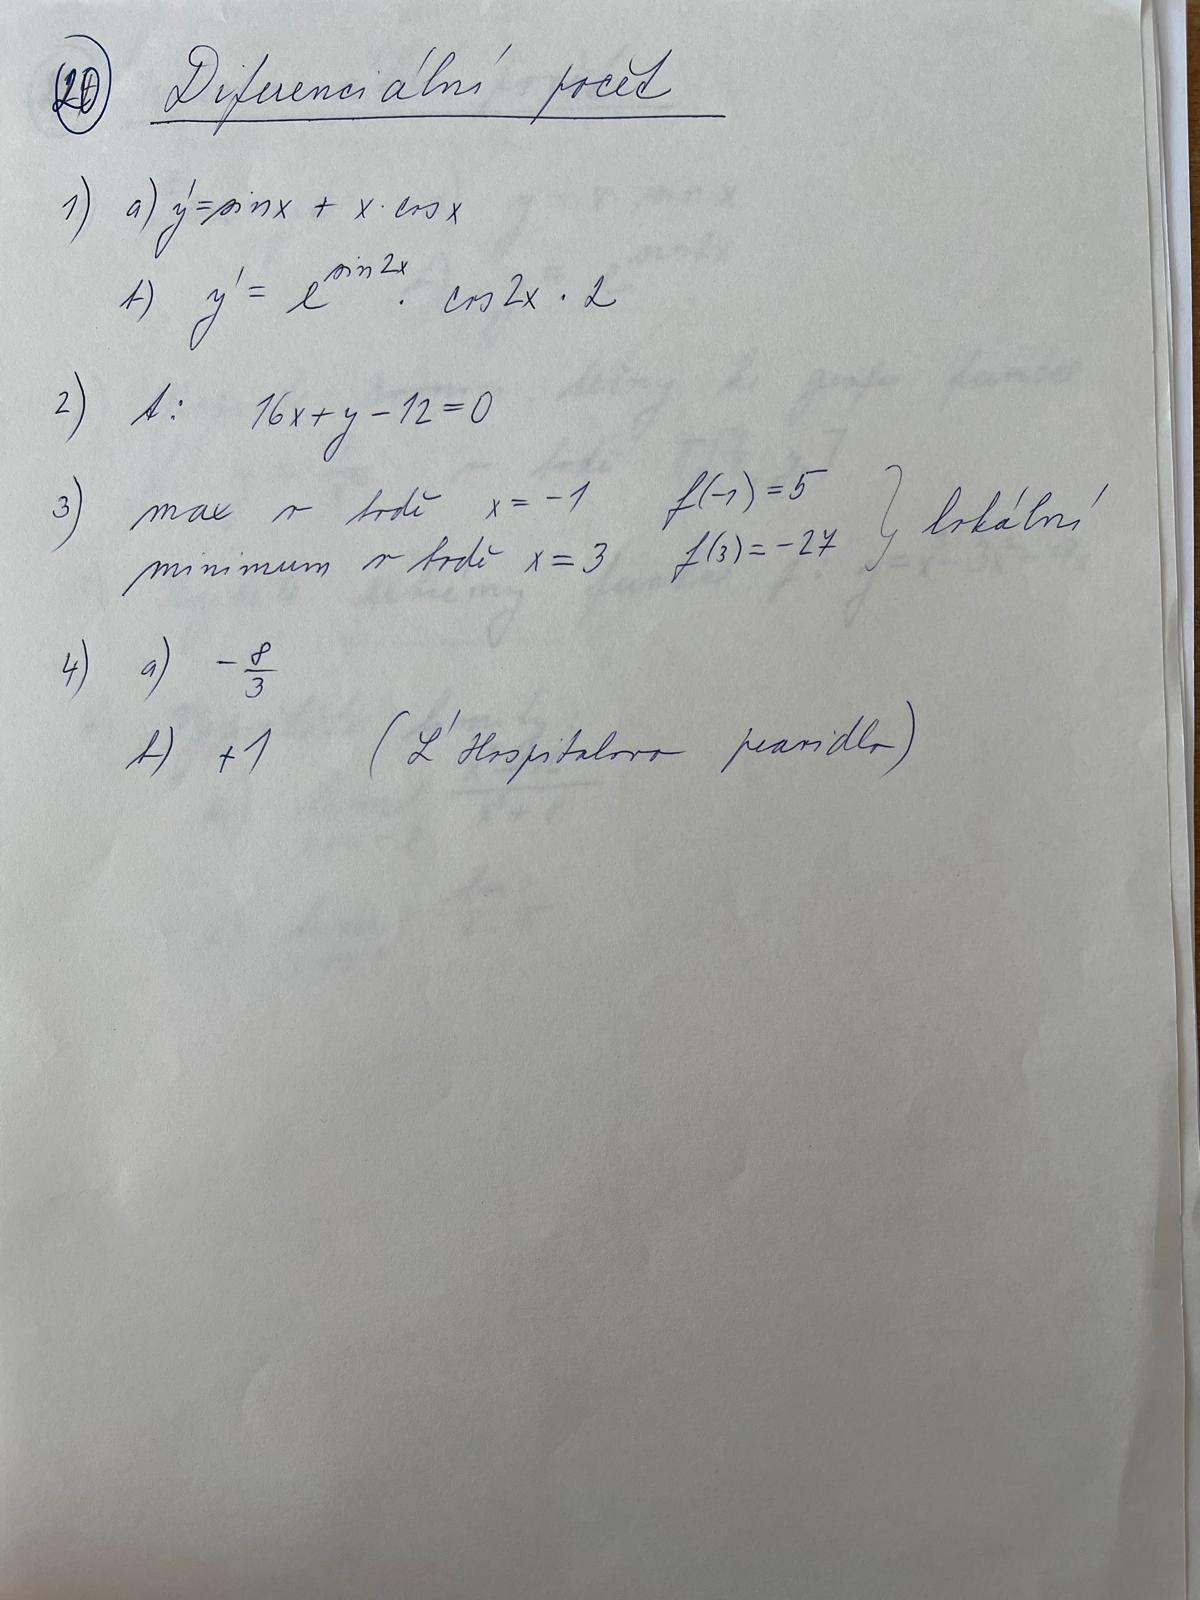 20 Diferenciální počet
1) a) y' = sinx + x · cosx
b) y' = e^sin2x · cos2x · 2
2) t: 16x + y - 12 = 0
3) max v bodě x = -1 f(-1) = 5
minimum v bodě x = 3 f(3) = -27 } lokální
4) a) -8/3
b) +1 (L'Hospitalovo pravidlo)